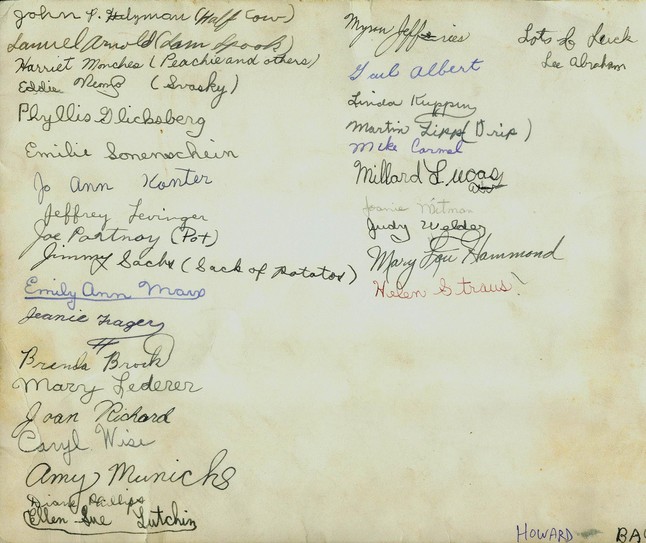 John P. Holzman (Half Cow)
Samuel Arnold (Sam Spook)
Harriet Monches (Peachie and others)
Eddie (Svasky)
Phyllis Glicksberg
Emilie Sonenschein
Jo Ann Konter
Jeffrey Levinger
Joe Portnoy (Pot)
Jimmy Sachs (Sack of potatos)
Emily Ann Marx
Jeanie Frager
Brenda Brock
Mary Lederer
Joan Richard
Caryl Wise
Amy Munichs
Diane Phillips
Ellen Sue Lutchin
Myrn Jefferies
Gail Albert
Linda Kuppin
Martin Lipp (Drip)
Mike Carmel
Millard Lucas
Joanie Witman
Judy Welder
Mary Lou Hammond
Helen Straus!
Lots of Luck
Lee Abraham
HOWARD BA